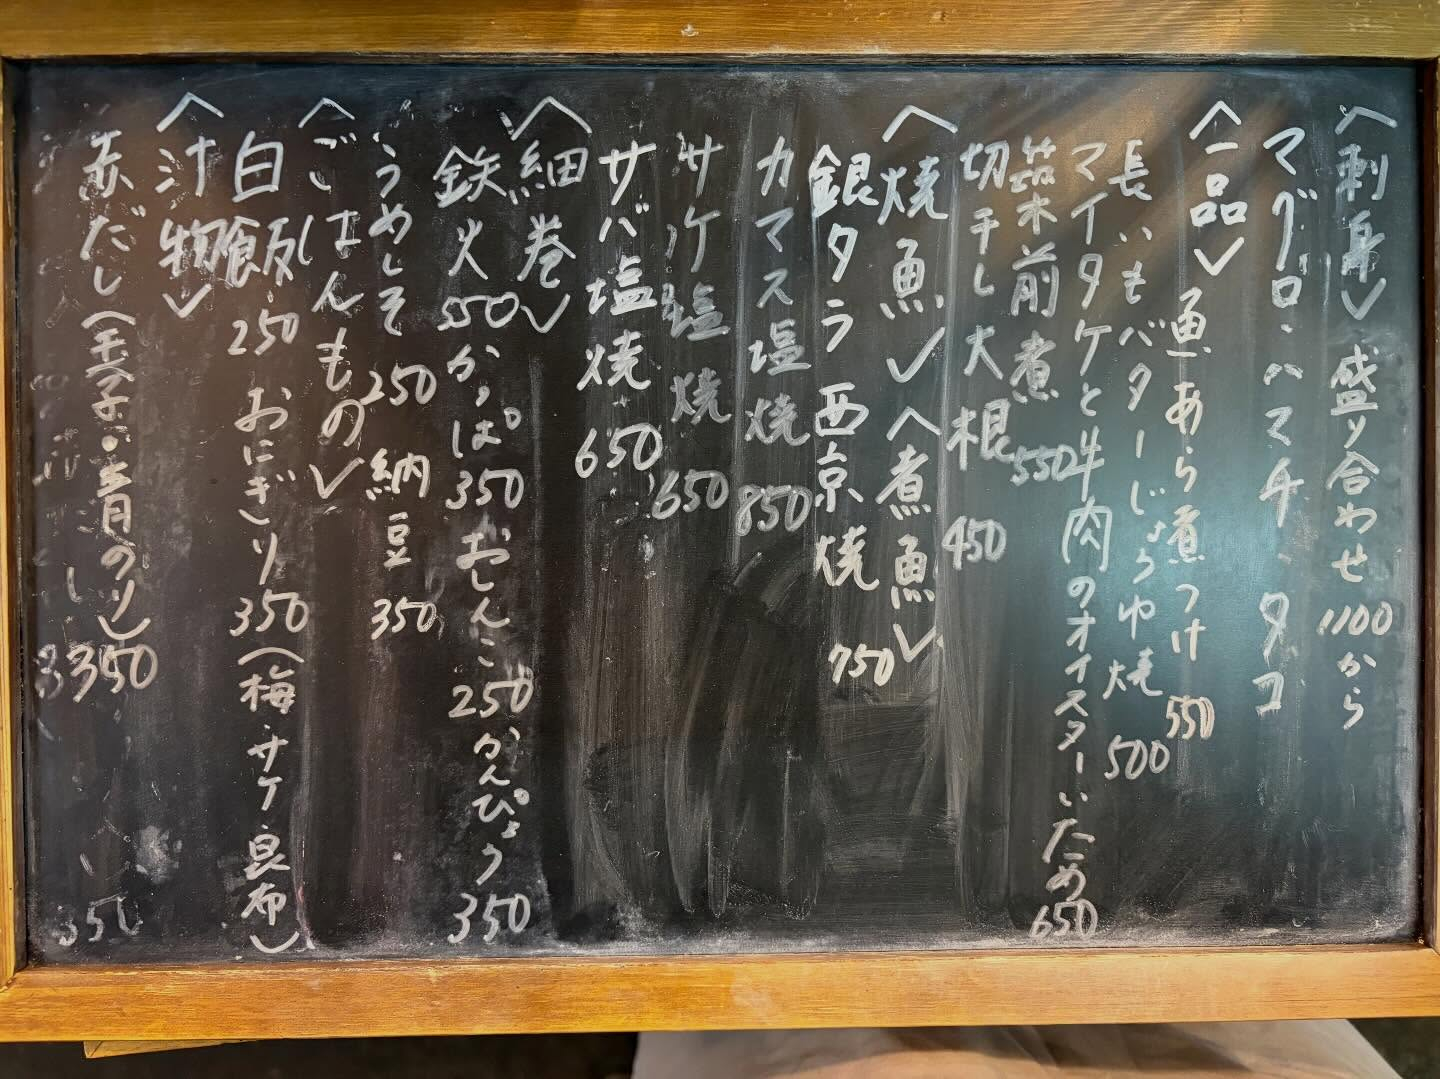 〈刺身〉盛り合わせ1100から
マグロ、ハマチ、タコ
〈一品〉魚あら煮つけ550
長いもバターじょうゆ焼500
マイタケと牛肉のオイスターいため650
筑前煮550
切干し大根450
〈焼魚〉〈煮魚〉
銀タラ西京焼750
カマス塩焼850
サケ塩焼650
サバ塩焼650
〈細巻〉
鉄火550かっぱ350おしんこ250かんぴょう350
うめしそ250納豆350
〈ごはんもの〉
白飯250おにぎり350(梅・サケ・昆布)
〈汁物〉
赤だし(玉子・青のり)350
350